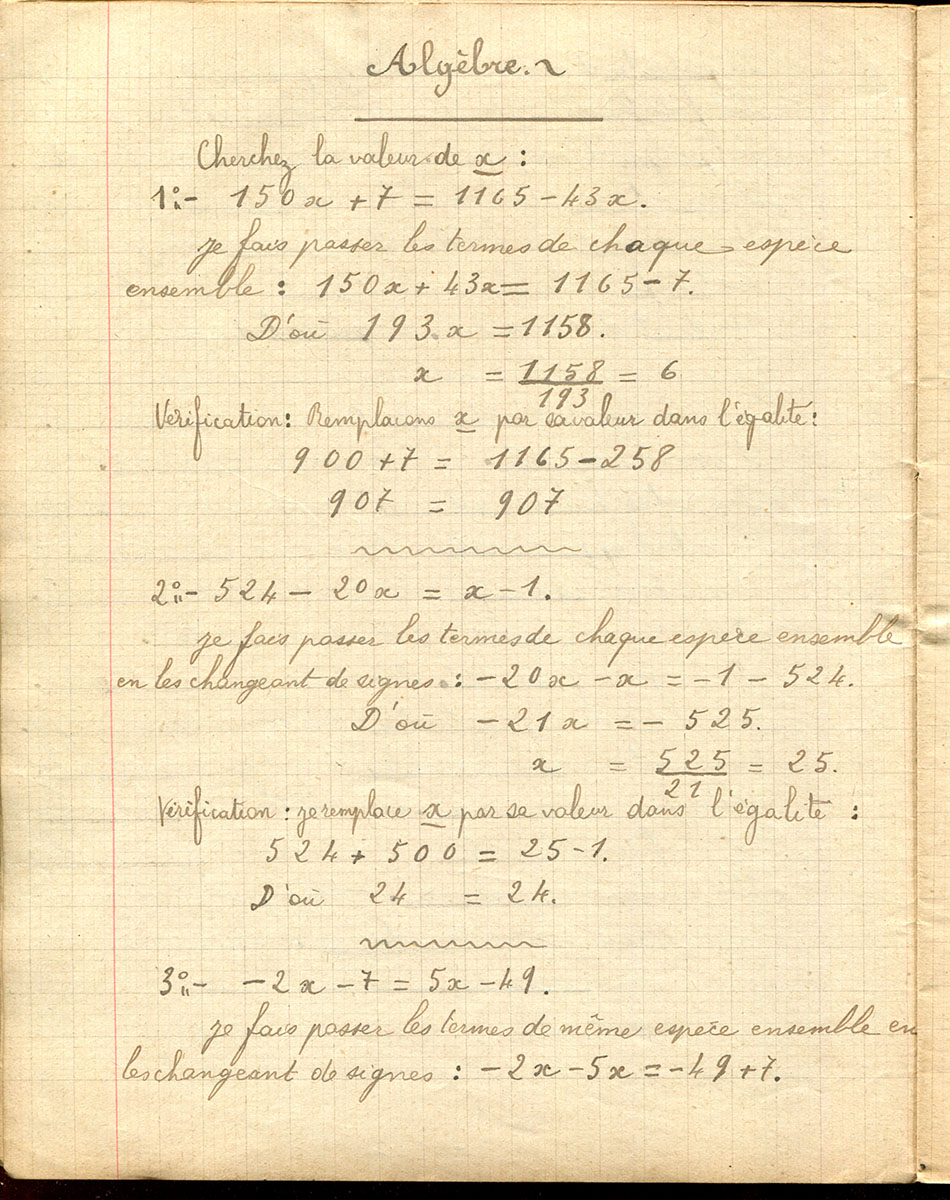 Algèbre.
Cherchez la valeur de x :
1º- 150x + 7 = 1165 - 43x.
Je fais passer les termes de chaque espèce
ensemble : 150x + 43x = 1165 - 7.
D'où 193x = 1158.
x = 1158/193 = 6
Vérification: Remplacons x par sa valeur dans l'égalité:
900 + 7 = 1165 - 258
907 = 907
2º- 524 - 20x = x - 1.
Je fais passer les termes de chaque espèce ensemble
en les changeant de signes : -20x - x = -1 - 524.
D'où -21x = - 525.
x = 525/21 = 25.
Vérification : je remplace x par se valeur dans l'égalité :
524 + 500 = 25 - 1.
D'où 24 = 24.
3º- -2x - 7 = 5x - 49.
Je fais passer les termes de même espèce ensemble en
les changeant de signes : -2x - 5x = -49 + 7.